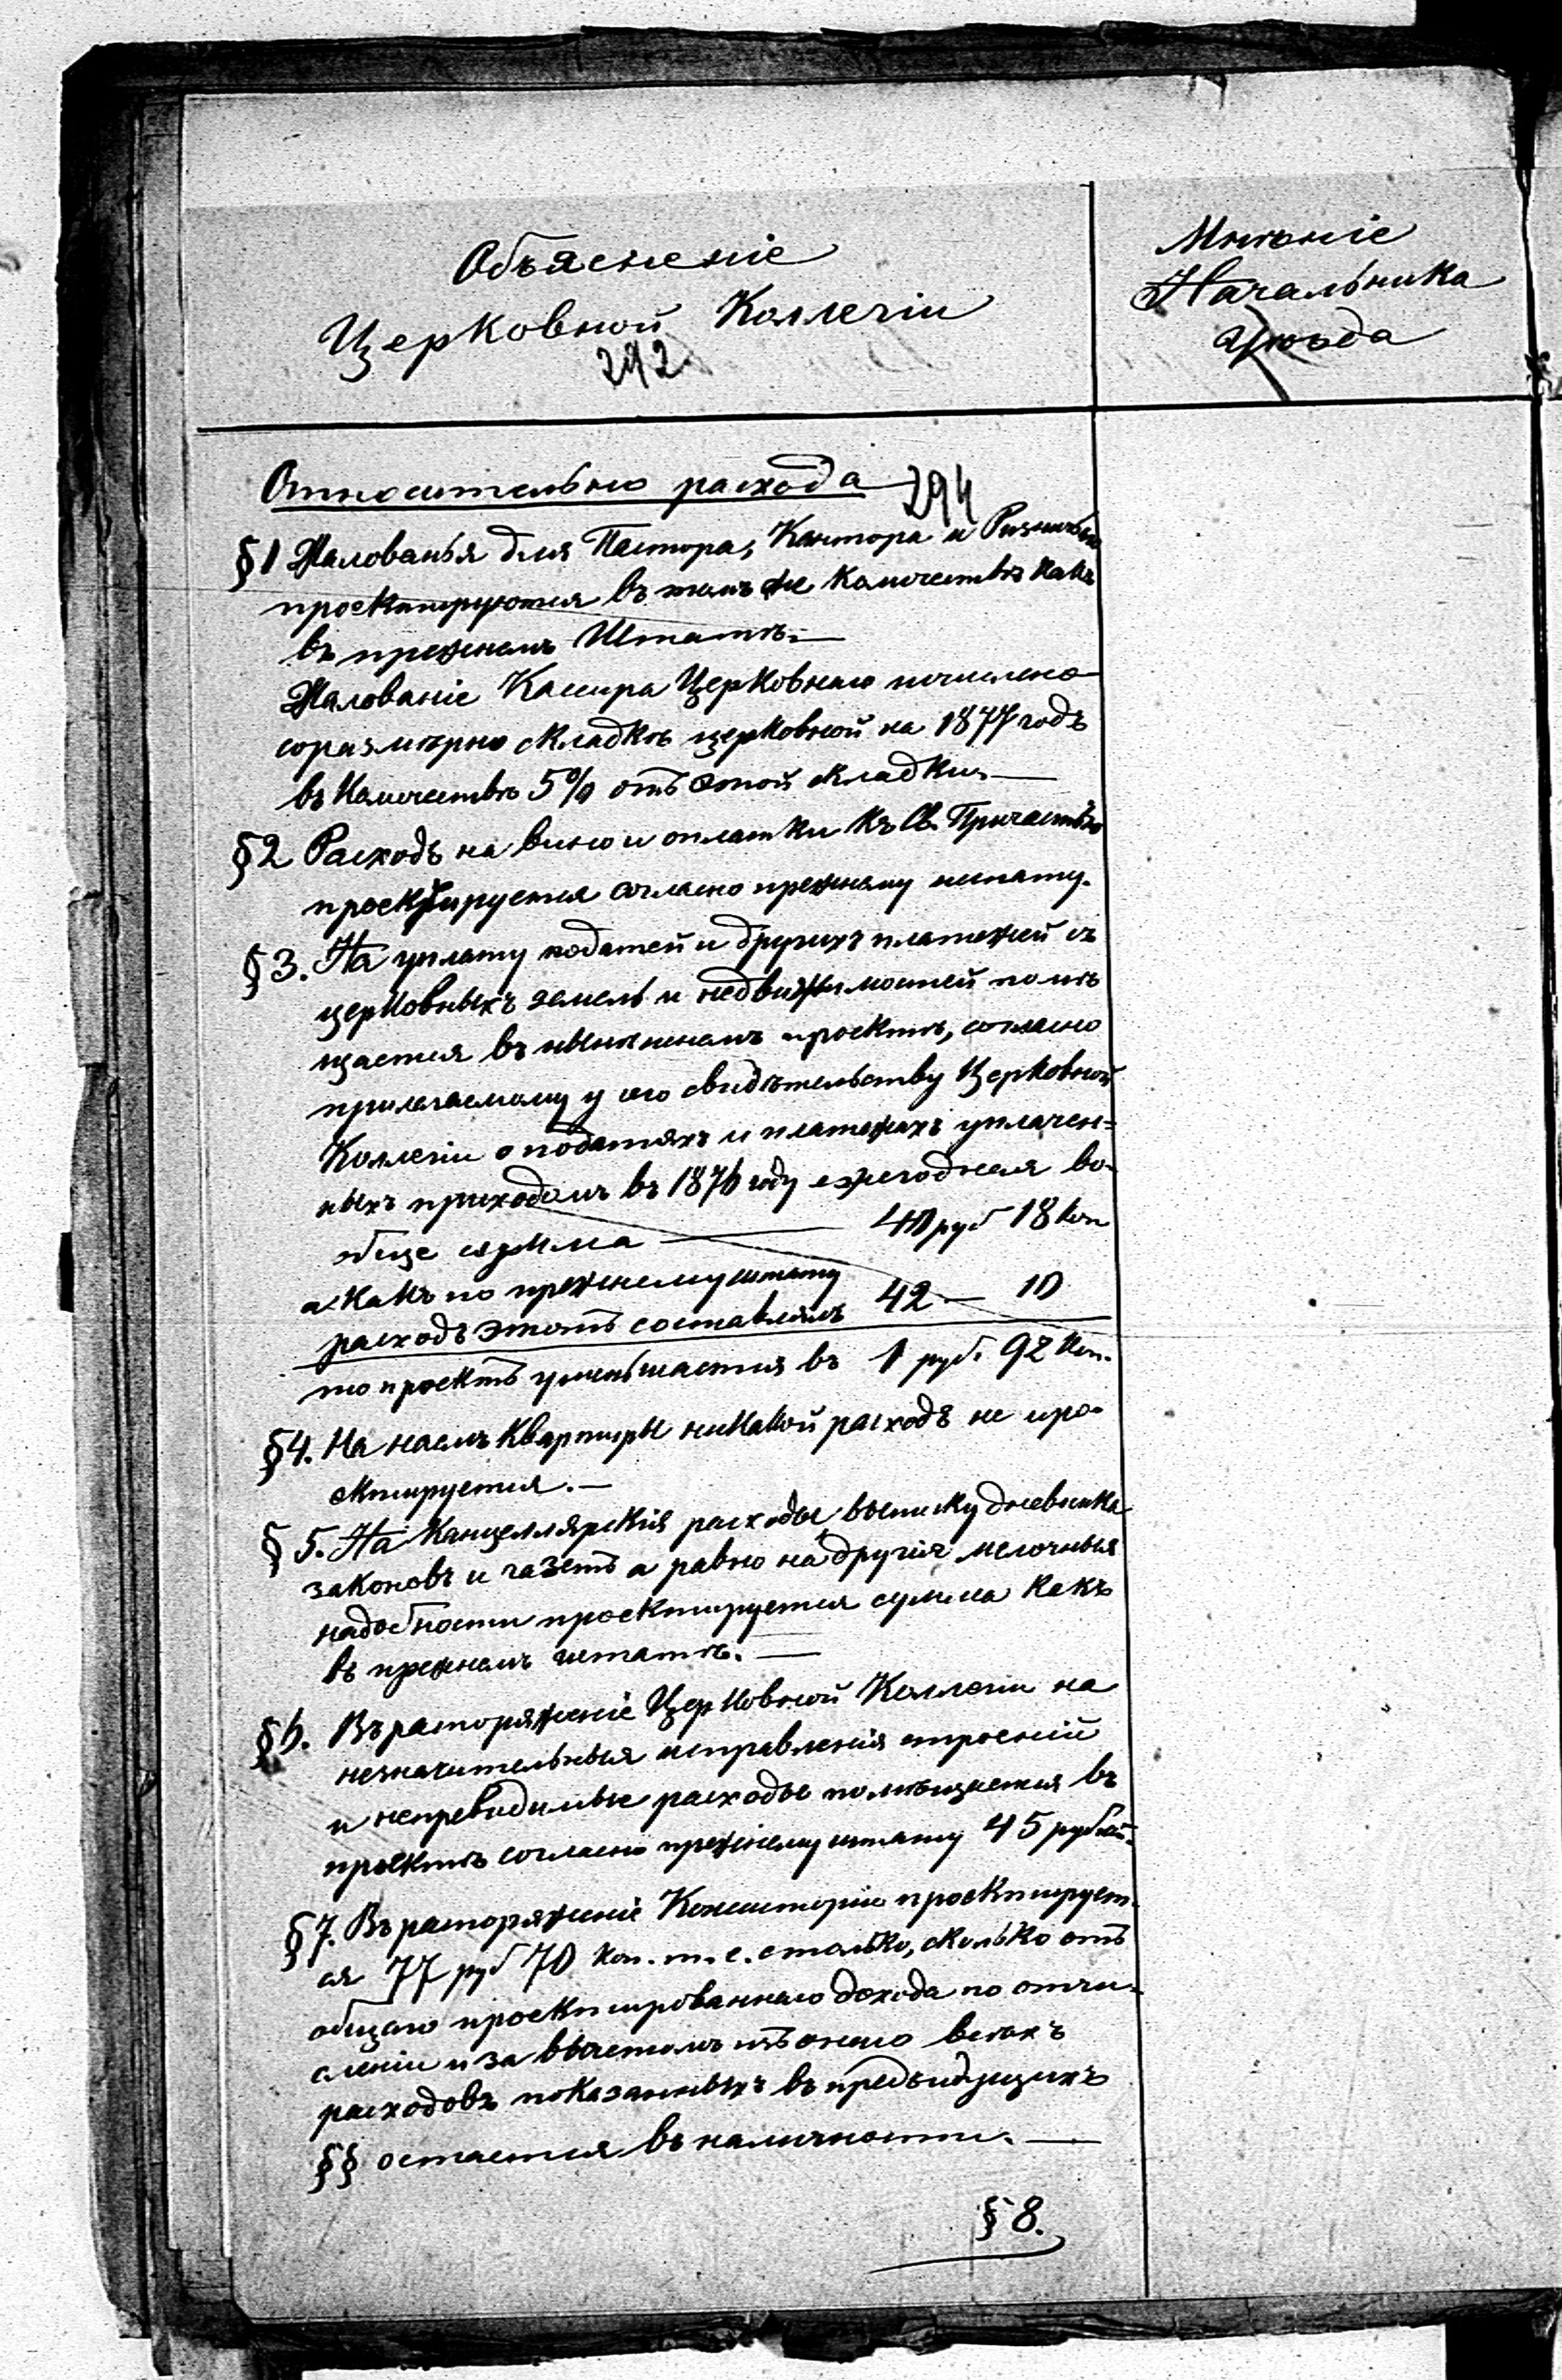 Объясненіе
Церковной Коллегіи
292
Мнѣніе
Начальника
Уѣзда
Относительно расхода
294
§1 Жалованья для Пастора, Кантора и Ризничаго
проектируются въ томъ же количествѣ какъ
въ прежнемъ Штатѣ.—
Жалованіе Кассира Церковнаго исчислено
соразмѣрно складкѣ церковной на 1877 годъ
въ количествѣ 5% отъ этой складки.—
§2 Расходъ на вино и оплатки къ Св. Причастью
проектируется согласно прежнему штату.
§3. На уплату податей и другихъ платежей съ
церковныхъ земель и недвижимостей помѣ
щается въ нынѣшнемъ проектѣ, согласно
прилагаемому у сего свидѣтельству Церковной
Коллегіи о податяхъ и платежахъ уплачен=
ныхъ приходомъ въ 1876 году ежегодная во-
обще сумма — 40 руб 18 коп
а какъ по прежнему штату
расходъ этотъ составлялъ 42 — 10
то проектъ уменьшается въ 1 руб. 92 коп.
§4. На наемъ квартиры никакой расходъ не про-
ектируется.—
§5. На Канцеллярскія расходы выписку дневника
законовъ и газетъ а равно на другія мелочныя
надобности проектируется сумма какъ
въ прежнемъ штатѣ.—
§6. Въ распоряженіе Церковной Коллегіи на
незначительныя исправленія строеній
и непревидимые расходы помѣщается въ
проектѣ согласно прежнему штату 45 рублей.
§7. Въ распоряженіе Консисторіи проектирует-
ся 77 руб 70 коп. т. е. столько, сколько отъ
общаго проектированнаго дохода по отчи-
сленіи и за вычетомъ изъ онаго всѣхъ
расходовъ показанныхъ въ предъидущихъ
§§ остается въ наличности.—
§8.